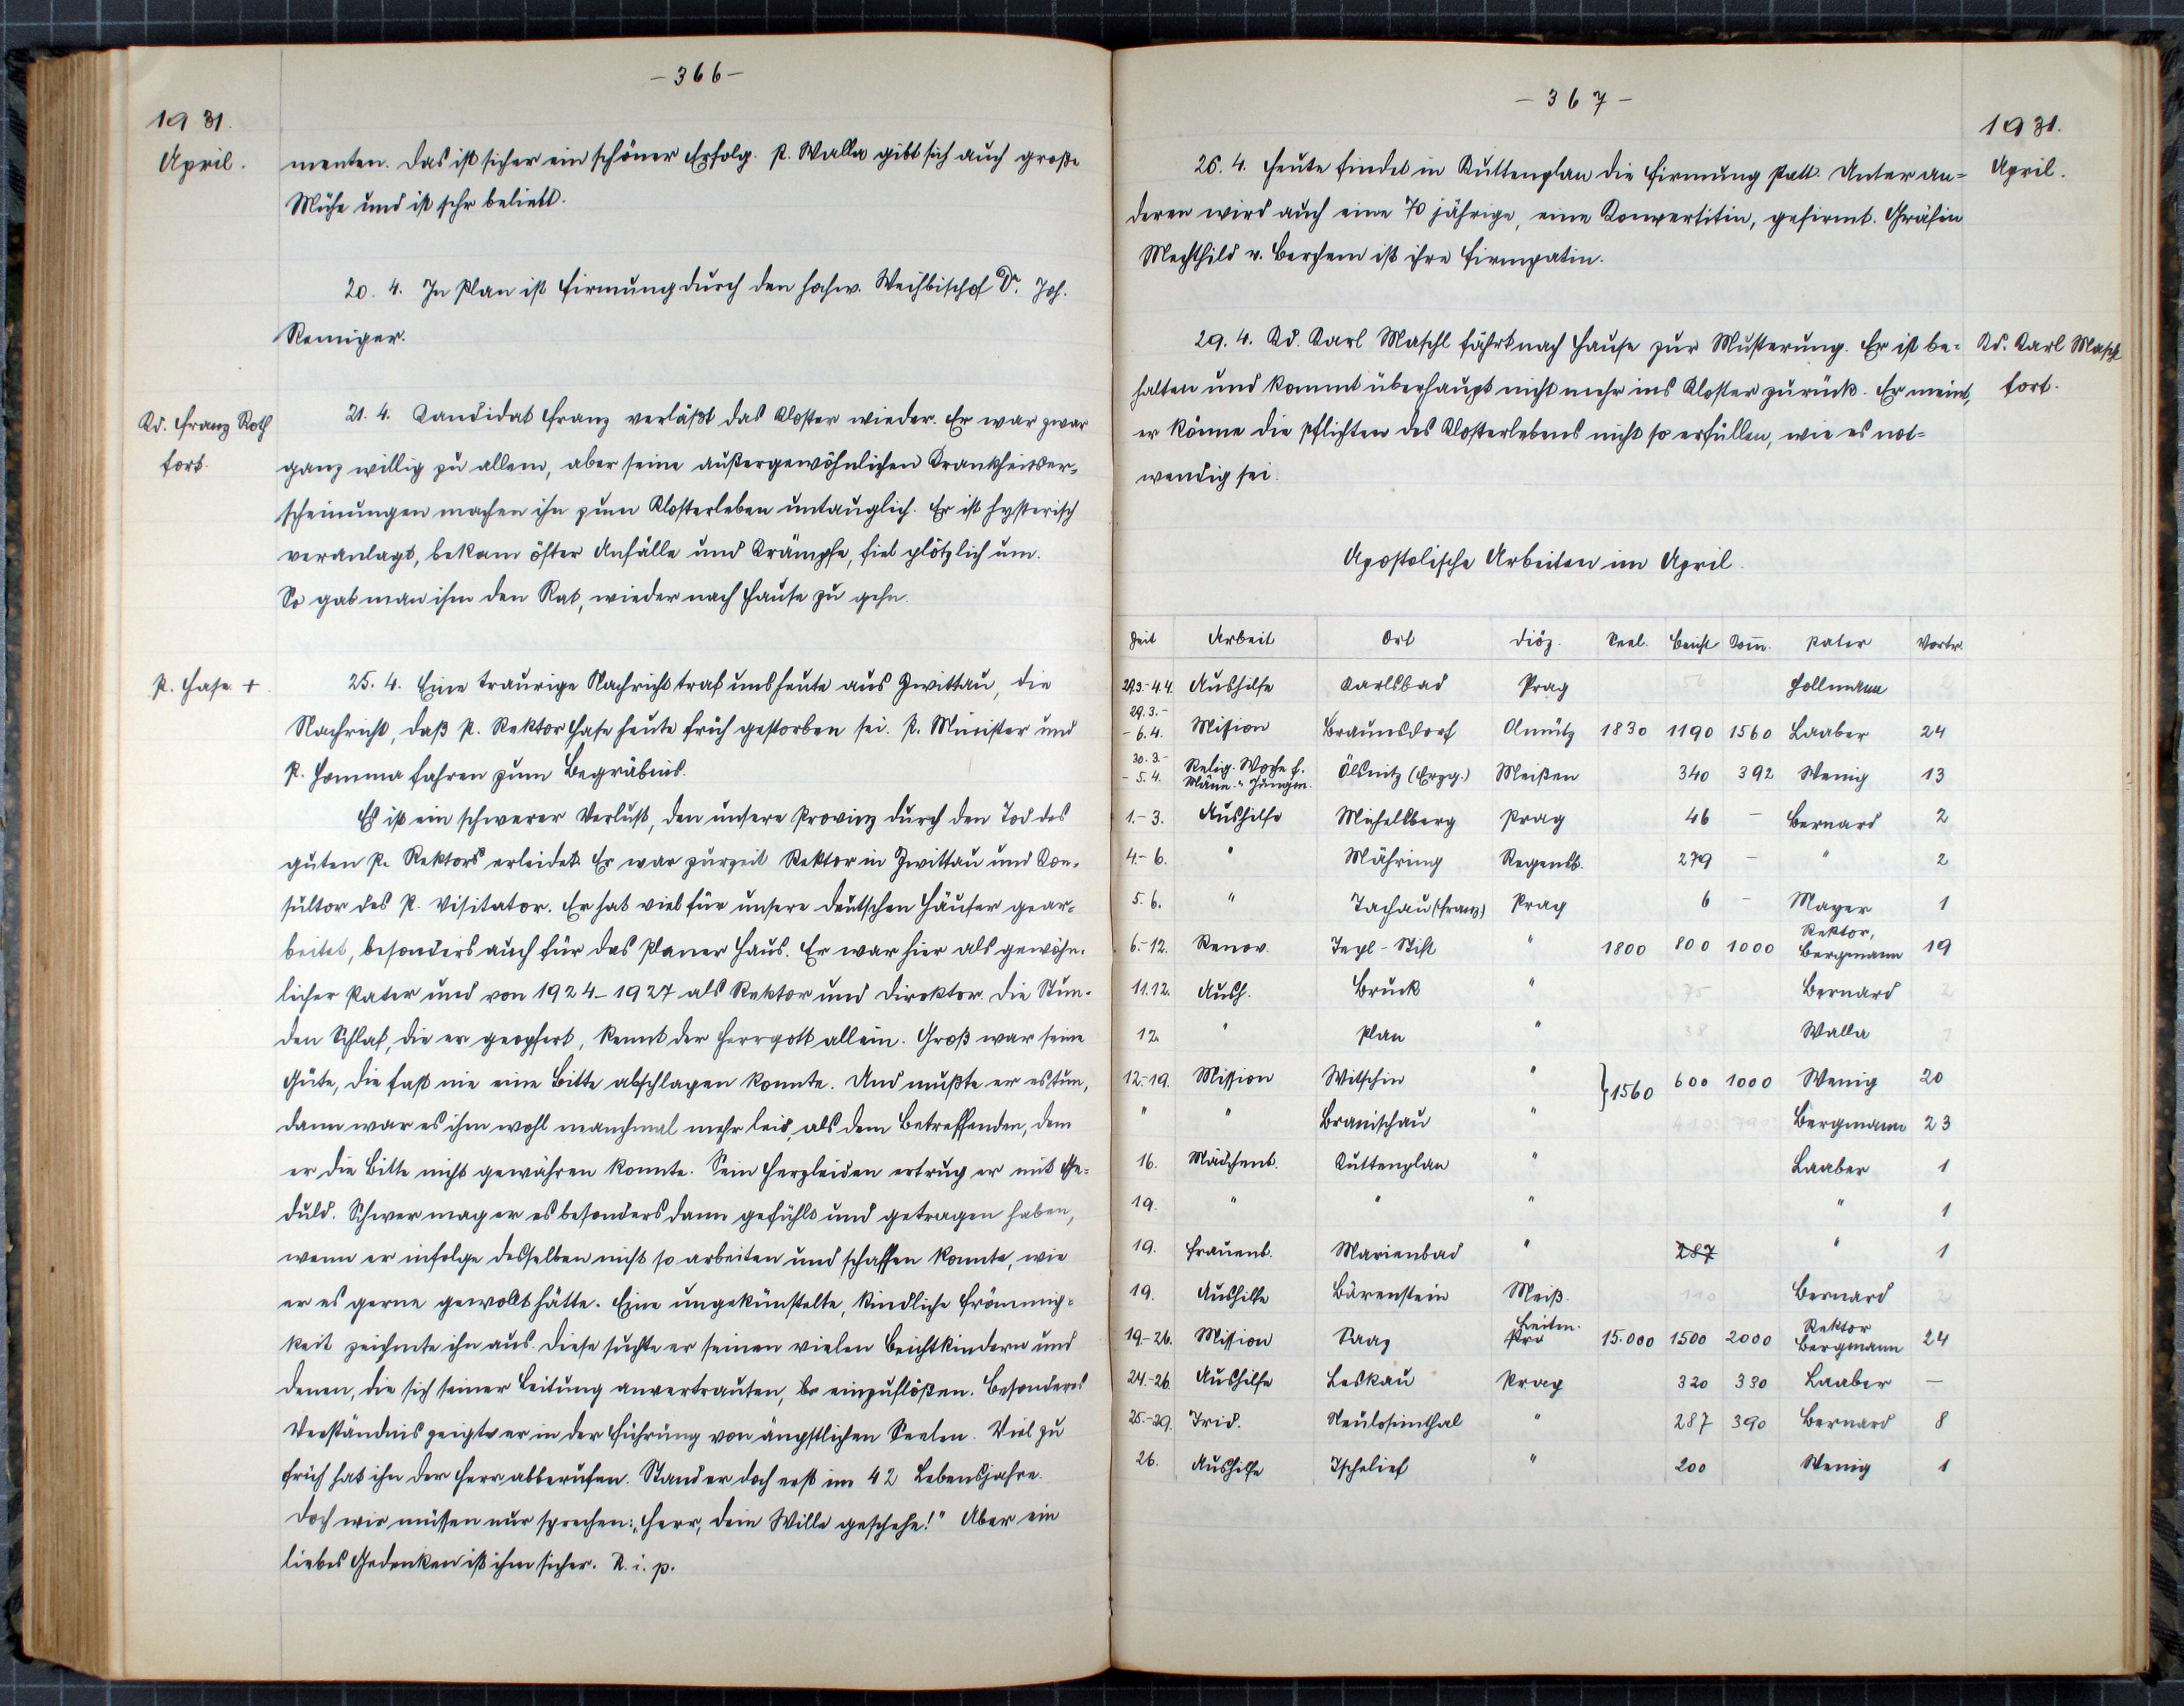 - 366 -
1931.
April.
menten. Das ist sicher ein schöner Erfolg. P. Walla gibt sich auch große
Mühe und ist sehr beliebt.
20. 4. In Plan ist Firmung durch den hochw. Weihbischof Dr. Joh.
Remiger.
Kd. Franz Roth
fort.
21. 4. Kandidat Franz verläßt das Kloster wieder. Er war zwar
ganz willig zu allem, aber seine außergewöhnlichen Krankheitser-
scheinungen machen ihn zum Klosterleben untauglich. Er ist hysterisch
veranlagt, bekam öfter Anfälle und Krämpfe, fiel plötzlich um.
So gab man ihm den Rat, wieder nach Hause zu gehn.
P. Hase +
25. 4. Eine traurige Nachricht traf uns heute aus Zwittau, die
Nachricht, daß P. Rektor Hase heute früh gestorben sei. P. Minister und
P. Homma fahren zum Begräbnis.
Es ist ein schwerer Verlust, den unsere Provinz durch den Tod des
guten P. Rektors erleidet. Er war zurzeit Rektor in Zwittau und Kon-
sultor des P. Visitator. Er hat viel für unsere deutschen Häuser gear-
beitet, besonders auch für das Planer Haus. Er war hier als gewöhn-
licher Pater und von 1924-1927 als Rektor und Direktor. Die Stun-
den Schlaf, die er geopfert, kennt der Herrgott allein. Groß war seine
Güte, die fast nie eine Bitte abschlagen konnte. Und mußte er es tun,
dann war es ihm wohl manchmal mehr leid, als dem Betreffenden, dem
er die Bitte nicht gewähren konnte. Sein Herzleiden ertrug er mit Ge-
duld. Schwer mag er es besonders dann gefühlt und getragen haben,
wenn er infolge desselben nicht so arbeiten und schaffen konnte, wie
er es gerne gewollt hätte. Eine ungekünstelte, kindliche Frömmig-
keit zeichnete ihn aus. Diese suchte er seinen vielen Beichtkindern und
denen, die sich seiner Leitung anvertrauten, einzuflößen. Besonderes
Verständnis zeigte er in der Führung von ängstlichen Seelen. Viel zu
früh hat ihn der Herr abberufen. Stand er doch erst im 42 Lebensjahre.
Doch wir müssen nur sprechen: „Herr, dein Wille geschehe!" Aber ein
liebes Gedenken ist ihm sicher. R. i. p.
- 367 -
1931.
April.
26. 4. Heute findet in Kuttenplan die Firmung statt. Unter an-
deren wird auch eine 70 jährige, eine Konvertitin, gefirmt. Gräfin
Mechthild v. Berchem ist ihre Firmpatin.
29. 4. Kd. Karl Maschl fährt nach Hause zur Musterung. Er ist be-
halten und kommt überhaupt nicht mehr ins Kloster zurück. Er meint,
er könne die Pflichten des Klosterlebens nicht so erfüllen, wie es not-
wendig sei.
Kd. Karl Maschl
fort.
Apostolische Arbeiten im April.
Zeit Arbeit Ort Diöz. Seel. Beicht Kom. Pater Vortr.
29.3.-4.4. Aushilfe Karlsbad Prag 56 Hollmann 2
29.3.-
-6.4. Mission Braunsdorf Olmütz 1830 1190 1560 Laaber 24
30.3.- Relig. Woche f.
-5.4. Männ. u. Jungm. Ölsnitz (Erzg.) Meißen 340 392 Wenig 13
1.-3. Aushilfe Michelsberg Prag 46 - Bernard 2
4.-6. " Mähring Regensb. 279 - " 2
5. 6. " Tachau (Franz) Prag 6 - Mayer 1
6.-12. Renov. Tepl-Stift " 1800 800 1000 Rektor, Bergmann 19
11.12. Aush. Bruck " 75 Bernard 2
12. " Plan " 38 Walla
12.-19. Mission Witschin " }1560 600 1000 Wenig 20
" " Branischau " Bergmann 23
16. Mädchenb. Kuttenplan " Laaber 1
19. " " " " 1
19. Frauenb. Marienbad " 287 " 1
19. Aushilfe Bärenstein Meiß. 110 Bernard 2
19.-26. Mission Saaz Leitm. 15.000 1500 2000 Rektor Bergmann 24
24.-26. Aushilfe Leskau Prag 320 330 Laaber -
25.-29. Trid. Neulosimthal " 287 390 Bernard 8
26. Aushilfe Tschelief " 200 Wenig 1